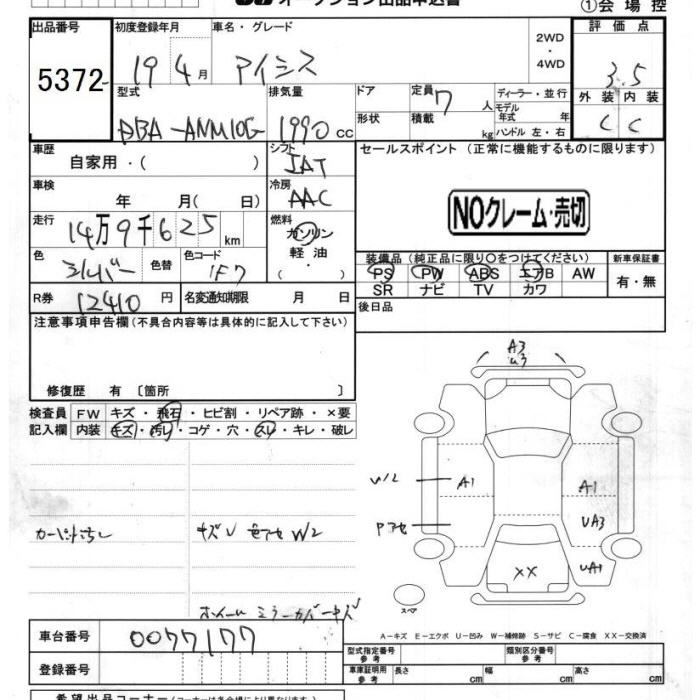 オークション出品申込書
①会場控
出品番号 初度登録年月 車名・グレード 2WD・4WD 評価点
5372 19 4月 アイシス 3.5
型式 排気量 ドア 定員 7人 ディーラー・並行 外装 内装
DBA-ANM10G 1990cc 形状 積載 kg モデル年式 年 ハンドル 左・右 C C
車歴 シフト セールスポイント (正常に機能するものに限ります)
自家用・( ) IAT
車検 冷房
年 月( 日) AAC
NOクレーム・売切
走行 燃料
14万9千625km ガソリン
軽油
・( )
色 色替 色コード
シルバー 1F7
装備品 (純正品に限り○をつけてください) 新車保証書
PS PW ABS エアB AW 有・無
SR ナビ TV カワ
R券 12410円 名変通知期限 月 日 後日品
注意事項申告欄(不具合内容等は具体的に記入して下さい)
修復歴 有 〔箇所 〕
A3
U3
検査員 FW キズ・飛石・ヒビ割・リペア跡・×要
記入欄 内装 キズ・汚れ・コゲ・穴・スレ・キレ・破レ
W2 A1 A1
Pアセ UA3
カーペット汚レ キズU 色アセ W2
XX UA1
ホイール ミラーカバーキズ
スペア
A-キズ E-エクボ U-凹み W-補修跡 S-サビ C-腐食 XX-交換済
車台番号 0077177
型式指定番号 参考 類別区分番号 参考
登録番号 車庫証明用 参考 長さ cm 幅 cm 高さ cm
希望出品コーナー(コーナーは各会場により異なります)